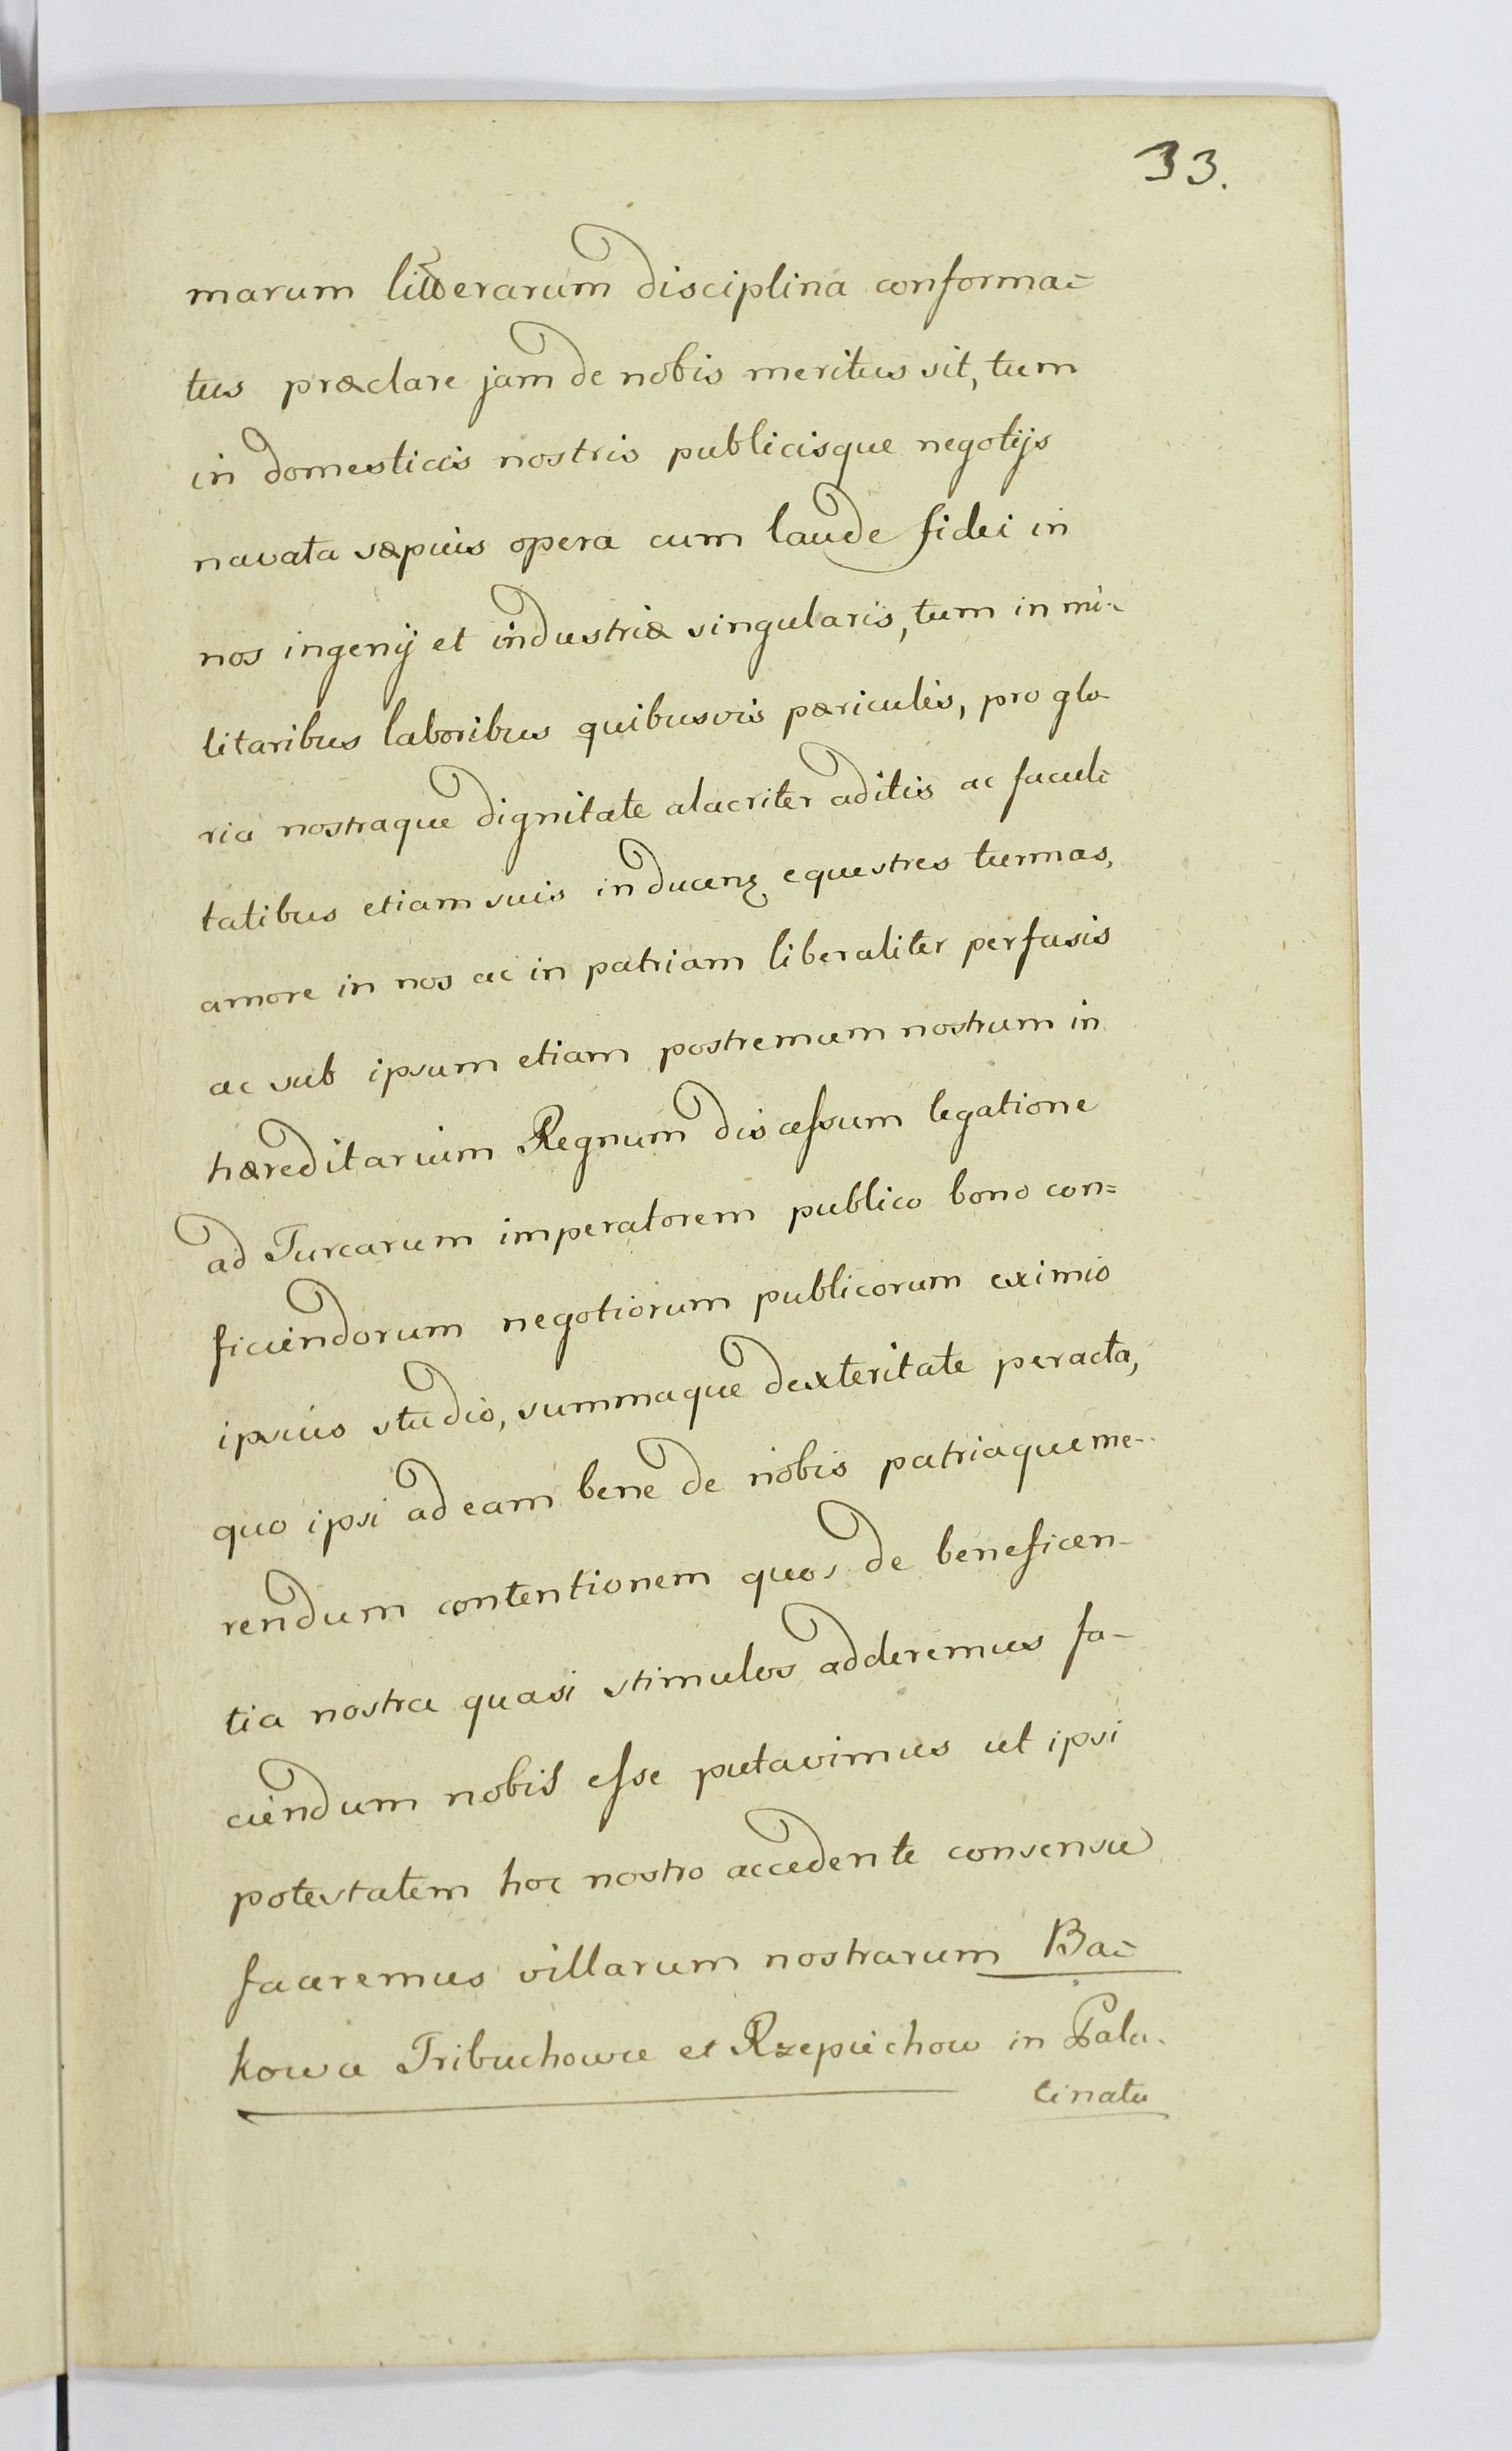 33.
marum litterarum disciplina conforma=
tus præclare jam de nobis meritus sit, tum
in domesticis nostris publicisque negotijs
navata sæpius opera cum laude fidei in
nos ingenij et industriæ singularis, tum in mi-
litaribus laboribus quibusvis pæriculis, pro glo-
ria nostraque dignitate alacriter aditis ac facul=
tatibus etiam suis in ducenꝫ equestres turmas,
amore in nos ac in patriam liberaliter perfusis
ac sub ipsum etiam postremum nostrum in
hæreditarium Regnum discessum legatione
ad Turcarum imperatorem publico bono con=
ficiendorum negotiorum publicorum eximio
ipsius studio, summaque dexteritate peracta,
quo ipsi ad eam bene de nobis patriaque me-
rendum contentionem quos de beneficen-
tia nostra quasi stimulos adderemus fa-
ciendum nobis esse putavimus ut ipsi
potestatem hoc nostro accedente consensu
faceremus villarum nostrarum Ba=
kowa Tribuchowce et Rzepiechow in Pala-
tinatu